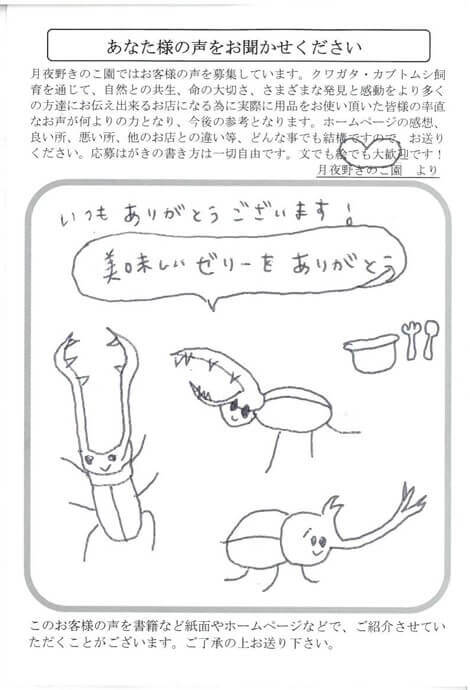 あなた様の声をお聞かせください
月夜野きのこ園ではお客様の声を募集しています。クワガタ・カブトムシ飼
育を通じて、自然との共生、命の大切さ、さまざまな発見と感動をより多く
の方達にお伝え出来るお店になる為に実際に用品をお使い頂いた皆様の率直
なお声が何よりの力となり、今後の参考となります。ホームページの感想、
良い所、悪い所、他のお店との違い等、どんな事でも結構ですので、お送り
ください。応募はがきの書き方は一切自由です。文でも絵でも大歓迎です！
月夜野きのこ園　より
いつも ありがとうございます！
美味しいゼリーを ありがとう
このお客様の声を書籍など紙面やホームページなどで、ご紹介させてい
ただくことがございます。ご了承の上お送り下さい。